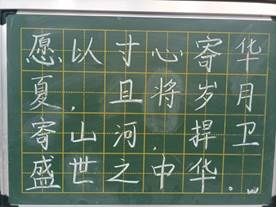 愿以寸心寄华
夏，且将岁月
寄山河，捍卫
盛世之中华。